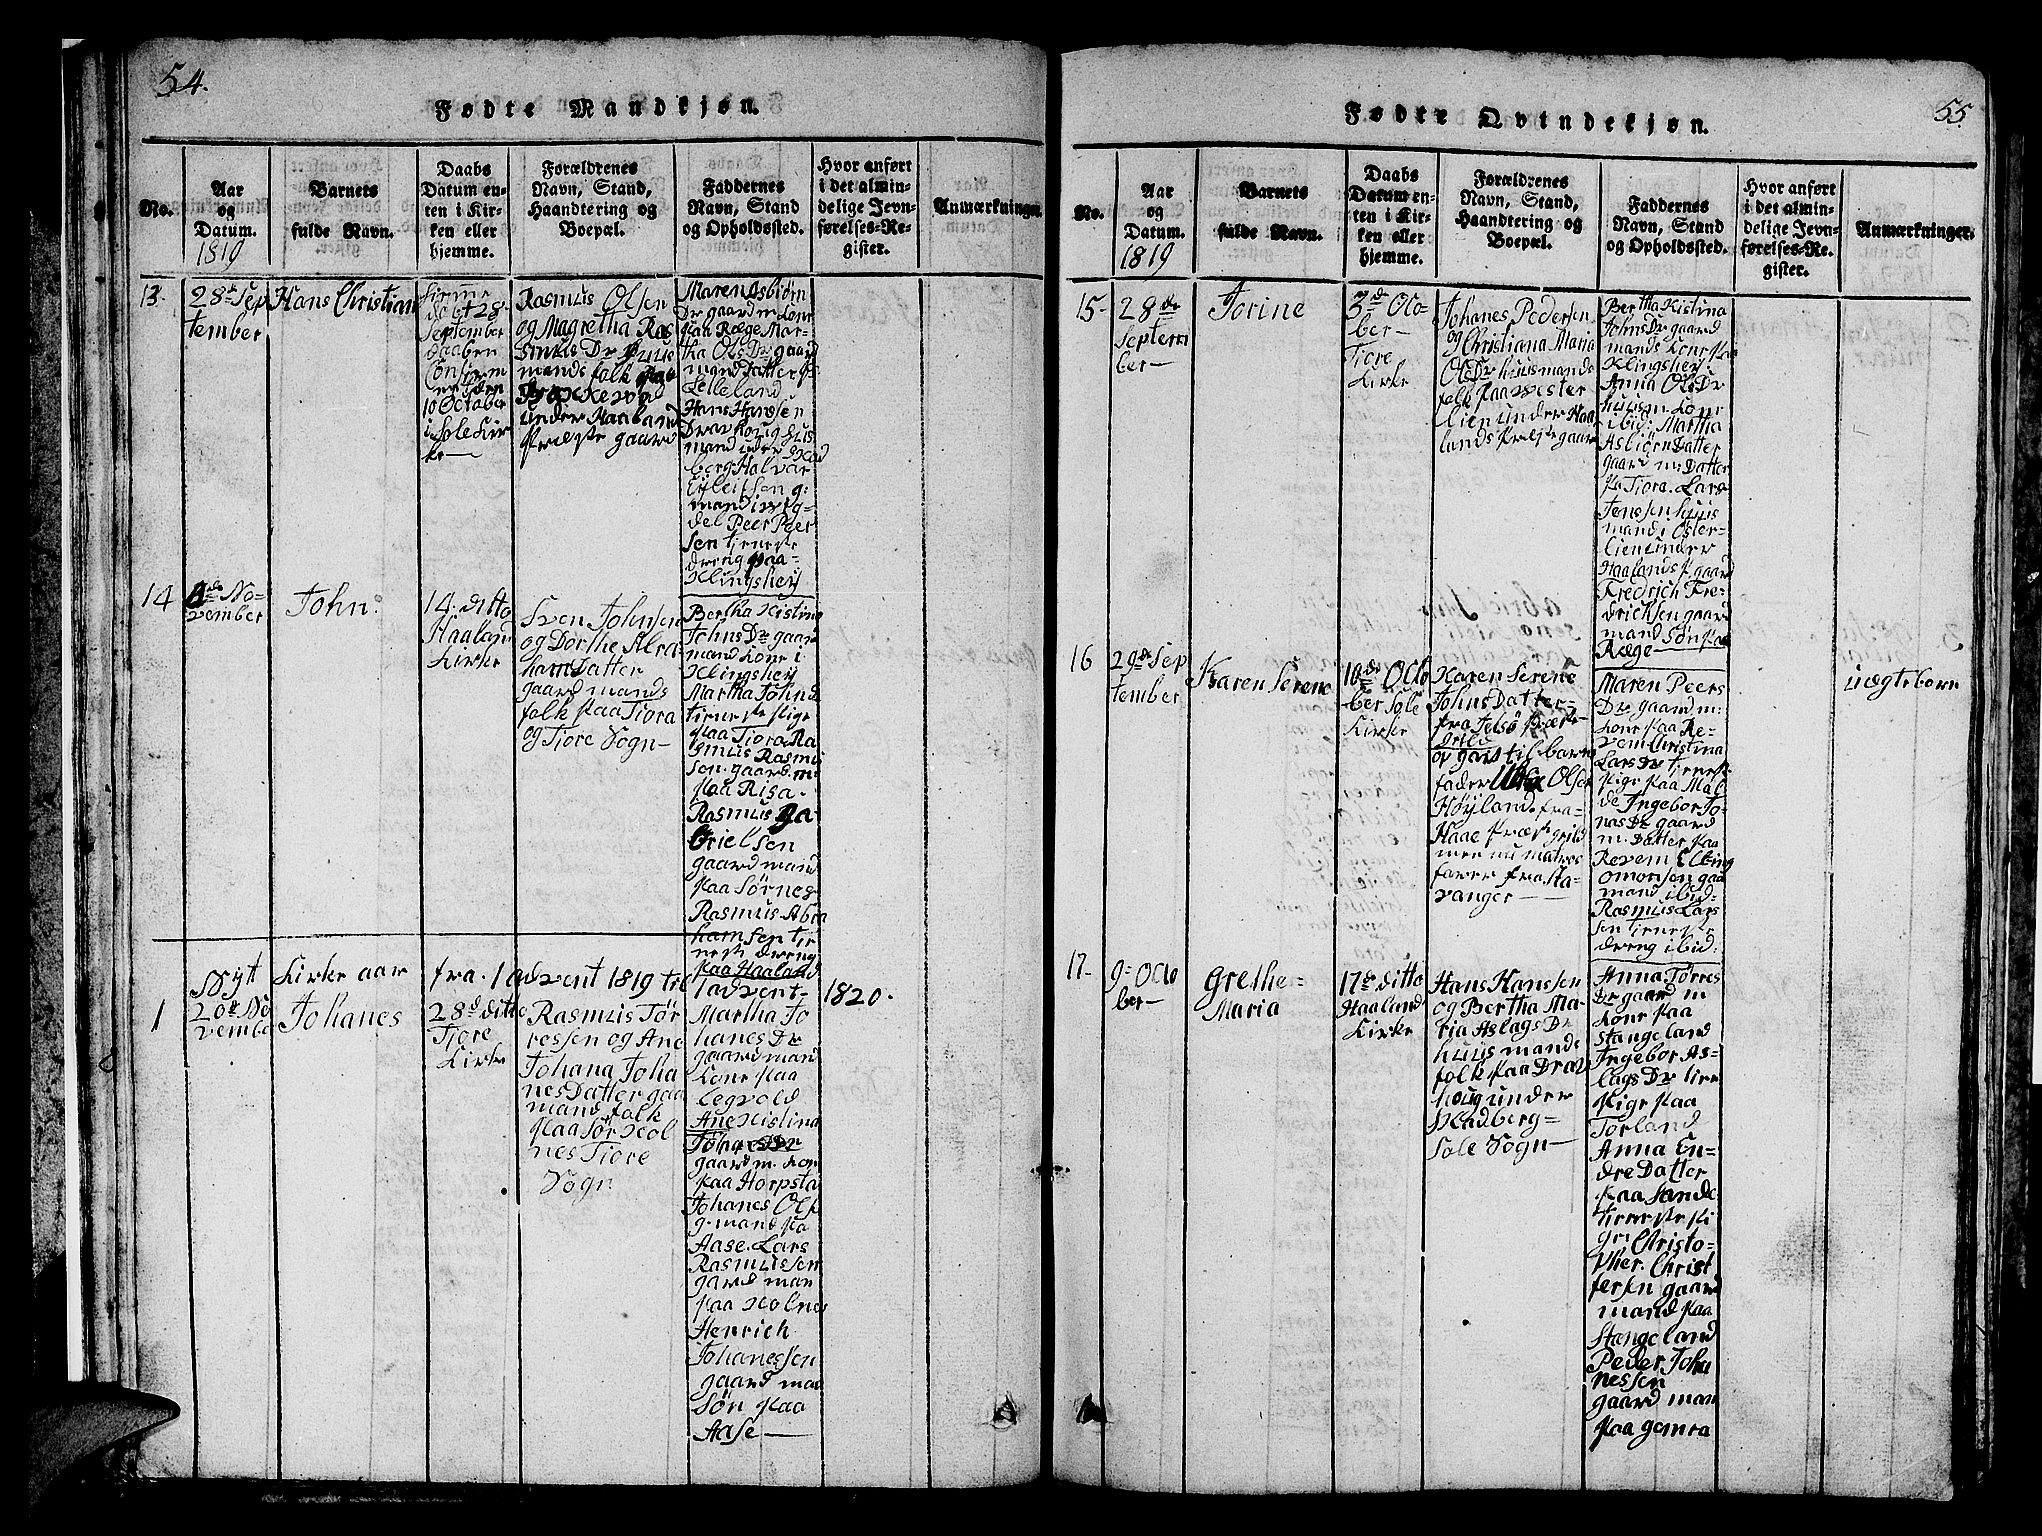 54.
Fødte Mandkjøn.
No.
Aar
og
Datum.
1819
Barnets
fulde Navn.
Daabs
Datum en-
ten i Kir-
ken eller
hjemme.
Forældrenes
Navn, Stand,
Haandtering og
Boepæl.
Faddernes
Navn, Stand
og Opholdssted.
Hvor anført
i det almin-
delige Jevn-
førelses-Re-
gister.
Anmærkninger.
13.
28de Sep
tember
Hans Christian
hiemme
døbt 28
September
Daaben
Confirm
eret den
10 October
i Sole Kir
ke
Rasmus Olsen
og Magretha Ras
smus Dr huus
mands folk paa
under Haaland
Præste gaard
Maren Asbiørn
Dr gaard m Kone
paa Ræge Mar-
tha Ols Dr gaard
mand Datter p
Lelleland
Hans Hansen
Dravhoug huus
mand under Skad
berg Halvar
Eyleifsen g:
mand i
del Peer Peer
sen tieneste
dreng paa
Klingshey
14
8de No-
vember
John.
14. ditto
Haaland
Kirke
Sven Johnsen
og Dorthe Abra
hams Datter
gaard mands
folk paa Tiora
og Tiore Sogn
Bertha Kistina
Johns Dr gaar
mand Kone i
Klingshey
Martha Johns
tieneste Pige
paa Tiora Ra
smus Rasmus
sen. gaard m:
paa Risa.
Rasmus Ga-
briel sen
gaard mand
paa Sørnes
Rasmus Abra
hamsen tie
neste dreng
paa Haaland
Nyt Kirke aar fra. 1 advent 1819 til 1 advent 1820.
1
20de No
vember
Johanes
28de ditto
Tiore
Kirke
Rasmus Tør
ressen og Ane
Johana Joha
nes Datter gaa
mand folk
paa Sør Kol
nes Tiore
Sogn
Martha Jo
hanes Dr
gaard man
Kone paa
Legvold
Ane Kistina
Johanes Dr
gaard m. Kon
paa Horpsta
Johanes Ols
g. mand pa
Aase. Lars
Rasmussen
gard man
paa Kolnes
Henrich
Johanessen
gaard man
Søn paa
Aase
55.
Fødte Qvindekjøn.
No.
Aar
og
Datum.
1819
Barnets
fulde Navn.
Daabs
Datum en-
ten i Kir-
ken eller
hjemme.
Forældrenes
Navn, Stand,
Haandtering og
Boepæl.
Faddernes
Navn, Stand
og Opholdssted.
Hvor anført
i det almin-
delige Jevn-
førelses-Re-
gister.
Anmærkninger.
15-
28de
Septem
ber
Torine
3de Octo
ber
Tiore
Kirke
Johanes Pedersen
og Christiana Maria
Ols Dr huusmands
folk paa Vester
Lien under Haa
lands Præstegaar
Bertha Kistina
Johns Dr gaard
mands Kone paa
Klingshey
Anna Ols Dr
huusm. Kone
ibid: Martha
Asbiørn Datter
gaard m: Datter
pa Tiora. Lars
Jenssen huus
mand i Øster-
lien under
Haalands P. gaard
Fredrich Fre-
drichsen gaard
mand Søn paa
Ræge
16
29de Sep
tember
Karen Serene
10de Octo
ber Sole
Kirke
Karen Serene
Johns Datter
fra Jelsø Præste
grild
og gard til barne
fader Olsen
Høyland. fra
Haae Præstegrild
men nu matros
farer fra Sta-
vanger
Maren Peers
Dr gaard m:
Kone paa Re-
vem Christina
Lars Dr tieneste
Pige paa Mal
de Ingebor Jo-
nas Dr gaard
m. Datter paa
Revem Elling
omonsen gaa
mand ibid
Rasmus Lars
sen tieneste
dreng ibid.
uægteborn
17-
9de Octo
ber
Grethe
Maria
17de ditto
Haaland
Kirke
Hans Hanssen
og Bertha Ma-
ria Aslags Dr
huus mands
folk paa Drav
houg under
Skadberg
Sole Sogn
Anna Tørres
Dr gaard m
Kone paa
Stangeland
Ingebor As-
lags Dr tiene
Pige paa
Torland
Anna En-
dre Datter
paa Sande
tieneste Pi
ge Christo-
pher. Christ
fersen gaard
mand paa
Stangeland
Peder Joha
nessen
gaard man
paa Gomra